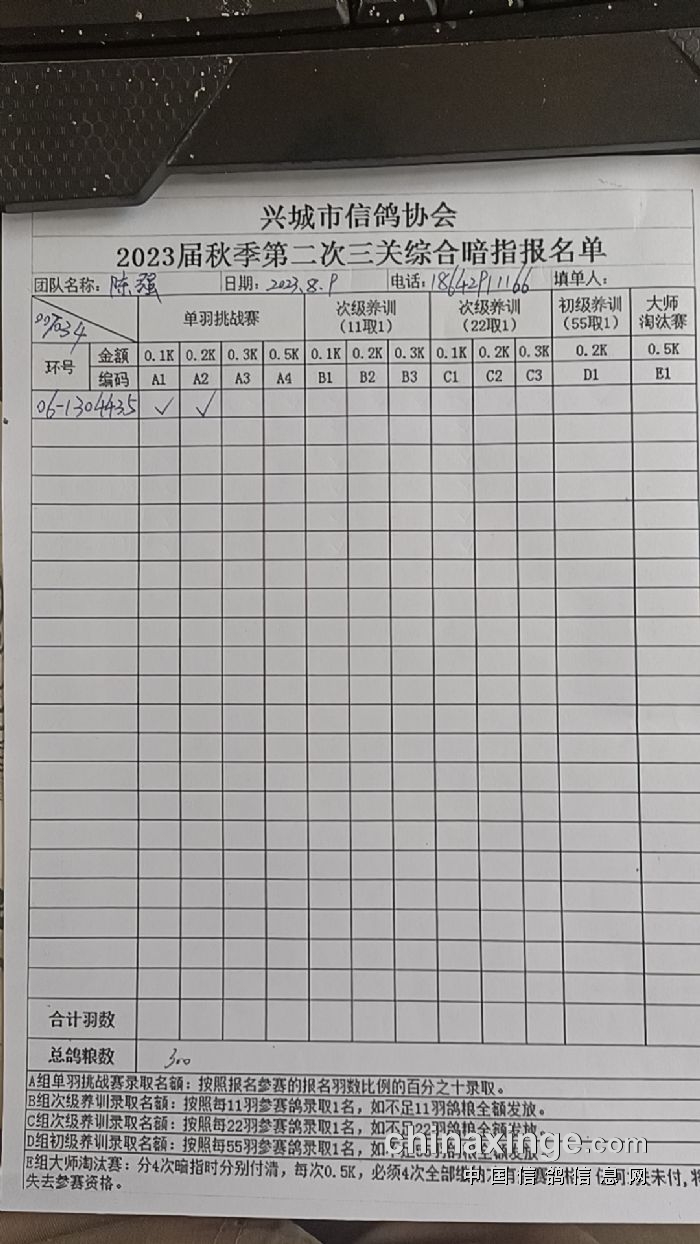 兴城市信鸽协会
2023届秋季第二次三关综合暗指报名单
团队名称: 陈强 日期: 2023.8.9 电话: 18642911166 填单人:
单羽挑战赛 次级养训 (11取1) 次级养训 (22取1) 初级养训 (55取1) 大师淘汰赛
环号 金额 0.1K 0.2K 0.3K 0.5K 0.1K 0.2K 0.3K 0.1K 0.2K 0.3K 0.2K 0.5K
编码 A1 A2 A3 A4 B1 B2 B3 C1 C2 C3 D1 E1
06-1304435 ✓ ✓
合计羽数
总鸽粮数 300
A组单羽挑战赛录取名额：按照报名参赛的报名羽数比例的百分之十录取。
B组次级养训录取名额：按照每11羽参赛鸽录取1名，如不足11羽鸽粮全额发放。
C组次级养训录取名额：按照每22羽参赛鸽录取1名，如不足22羽鸽粮全额发放。
D组初级养训录取名额：按照每55羽参赛鸽录取1名，如不足55羽鸽粮全额发放。
E组大师淘汰赛：分4次暗指时分别付清，每次0.5K，必须4次全部
失去参赛资格。
chinaxinge.com
中国信鸽信息网